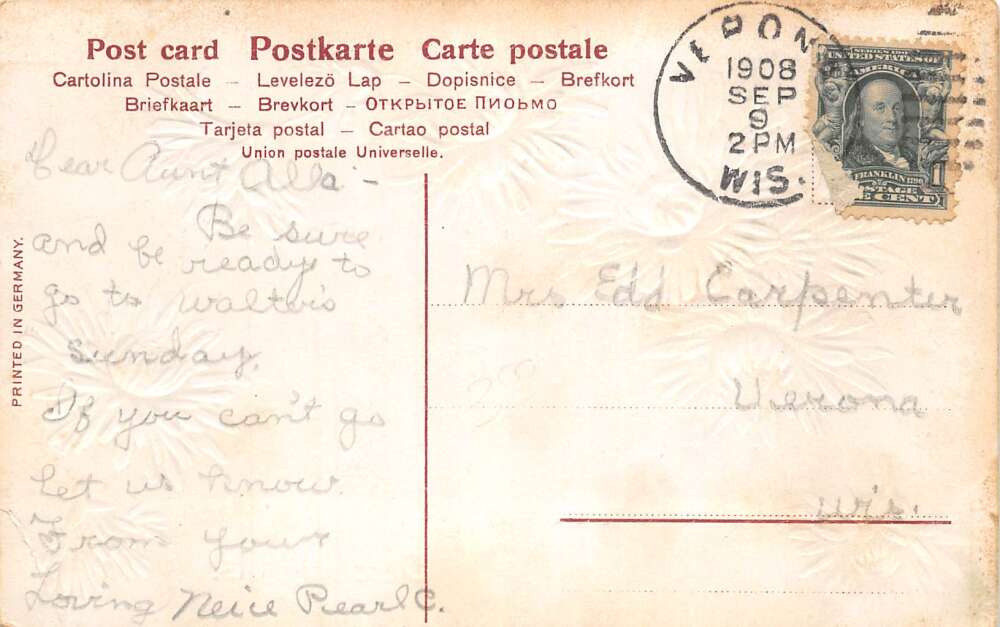 Post card Postkarte Carte postale
Cartolina Postale – Levelezö Lap – Dopisnice – Brefkort
Briefkaart – Brevkort – ОТКРЫТОЕ ПИОЬМО
Tarjeta postal – Cartao postal
Union postale Universelle.
PRINTED IN GERMANY.
Dear Aunt Alla –
Be sure
and be ready to
go to Walter's
Sunday.
If you can't go
let us know.
From your
Loving Neice Pearl C.
VERONA
1908
SEP
9
2 PM
WIS.
SERIES 1902
UNITED STATES OF
AMERICA
FRANKLIN 1790
POSTAGE
1
Mrs Edd Carpenter
Verona
Wis.